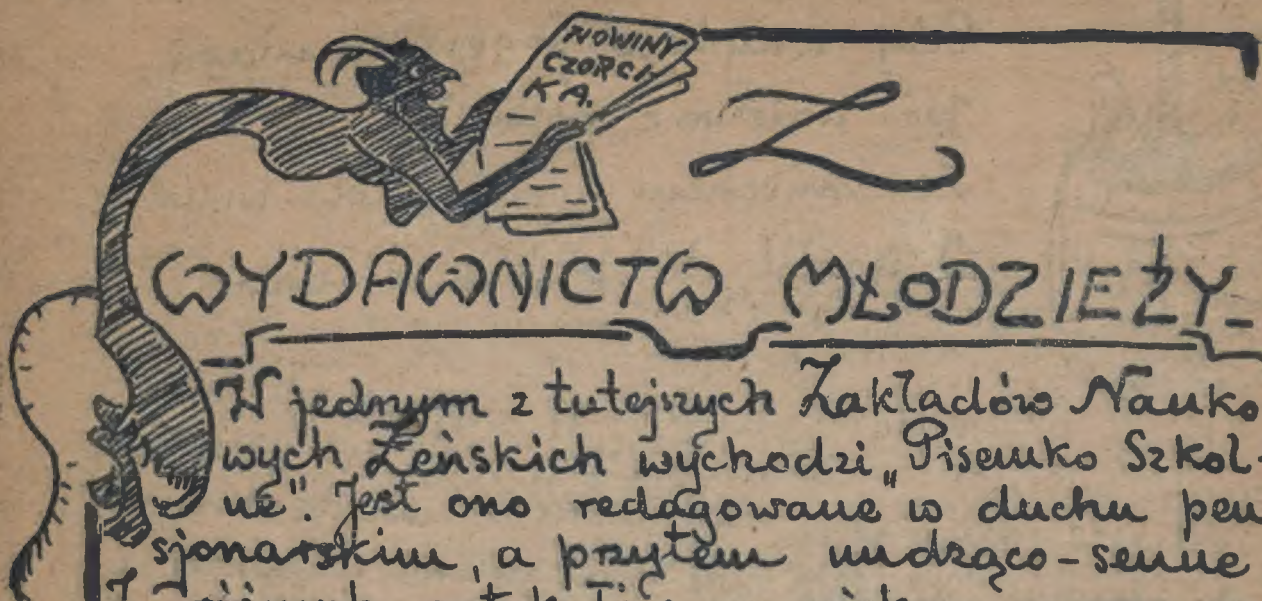 NOWINY
CZORCI
KA.
Z
WYDAWNICTW MŁODZIEŻY_
W jednym z tutejszych Zakładów Nauko
wych Żeńskich wychodzi „Pisemko Szkol-
ne". Jest ono redagowane w duchu pen
sjonarskim, a przytem nudząco-senne
Z